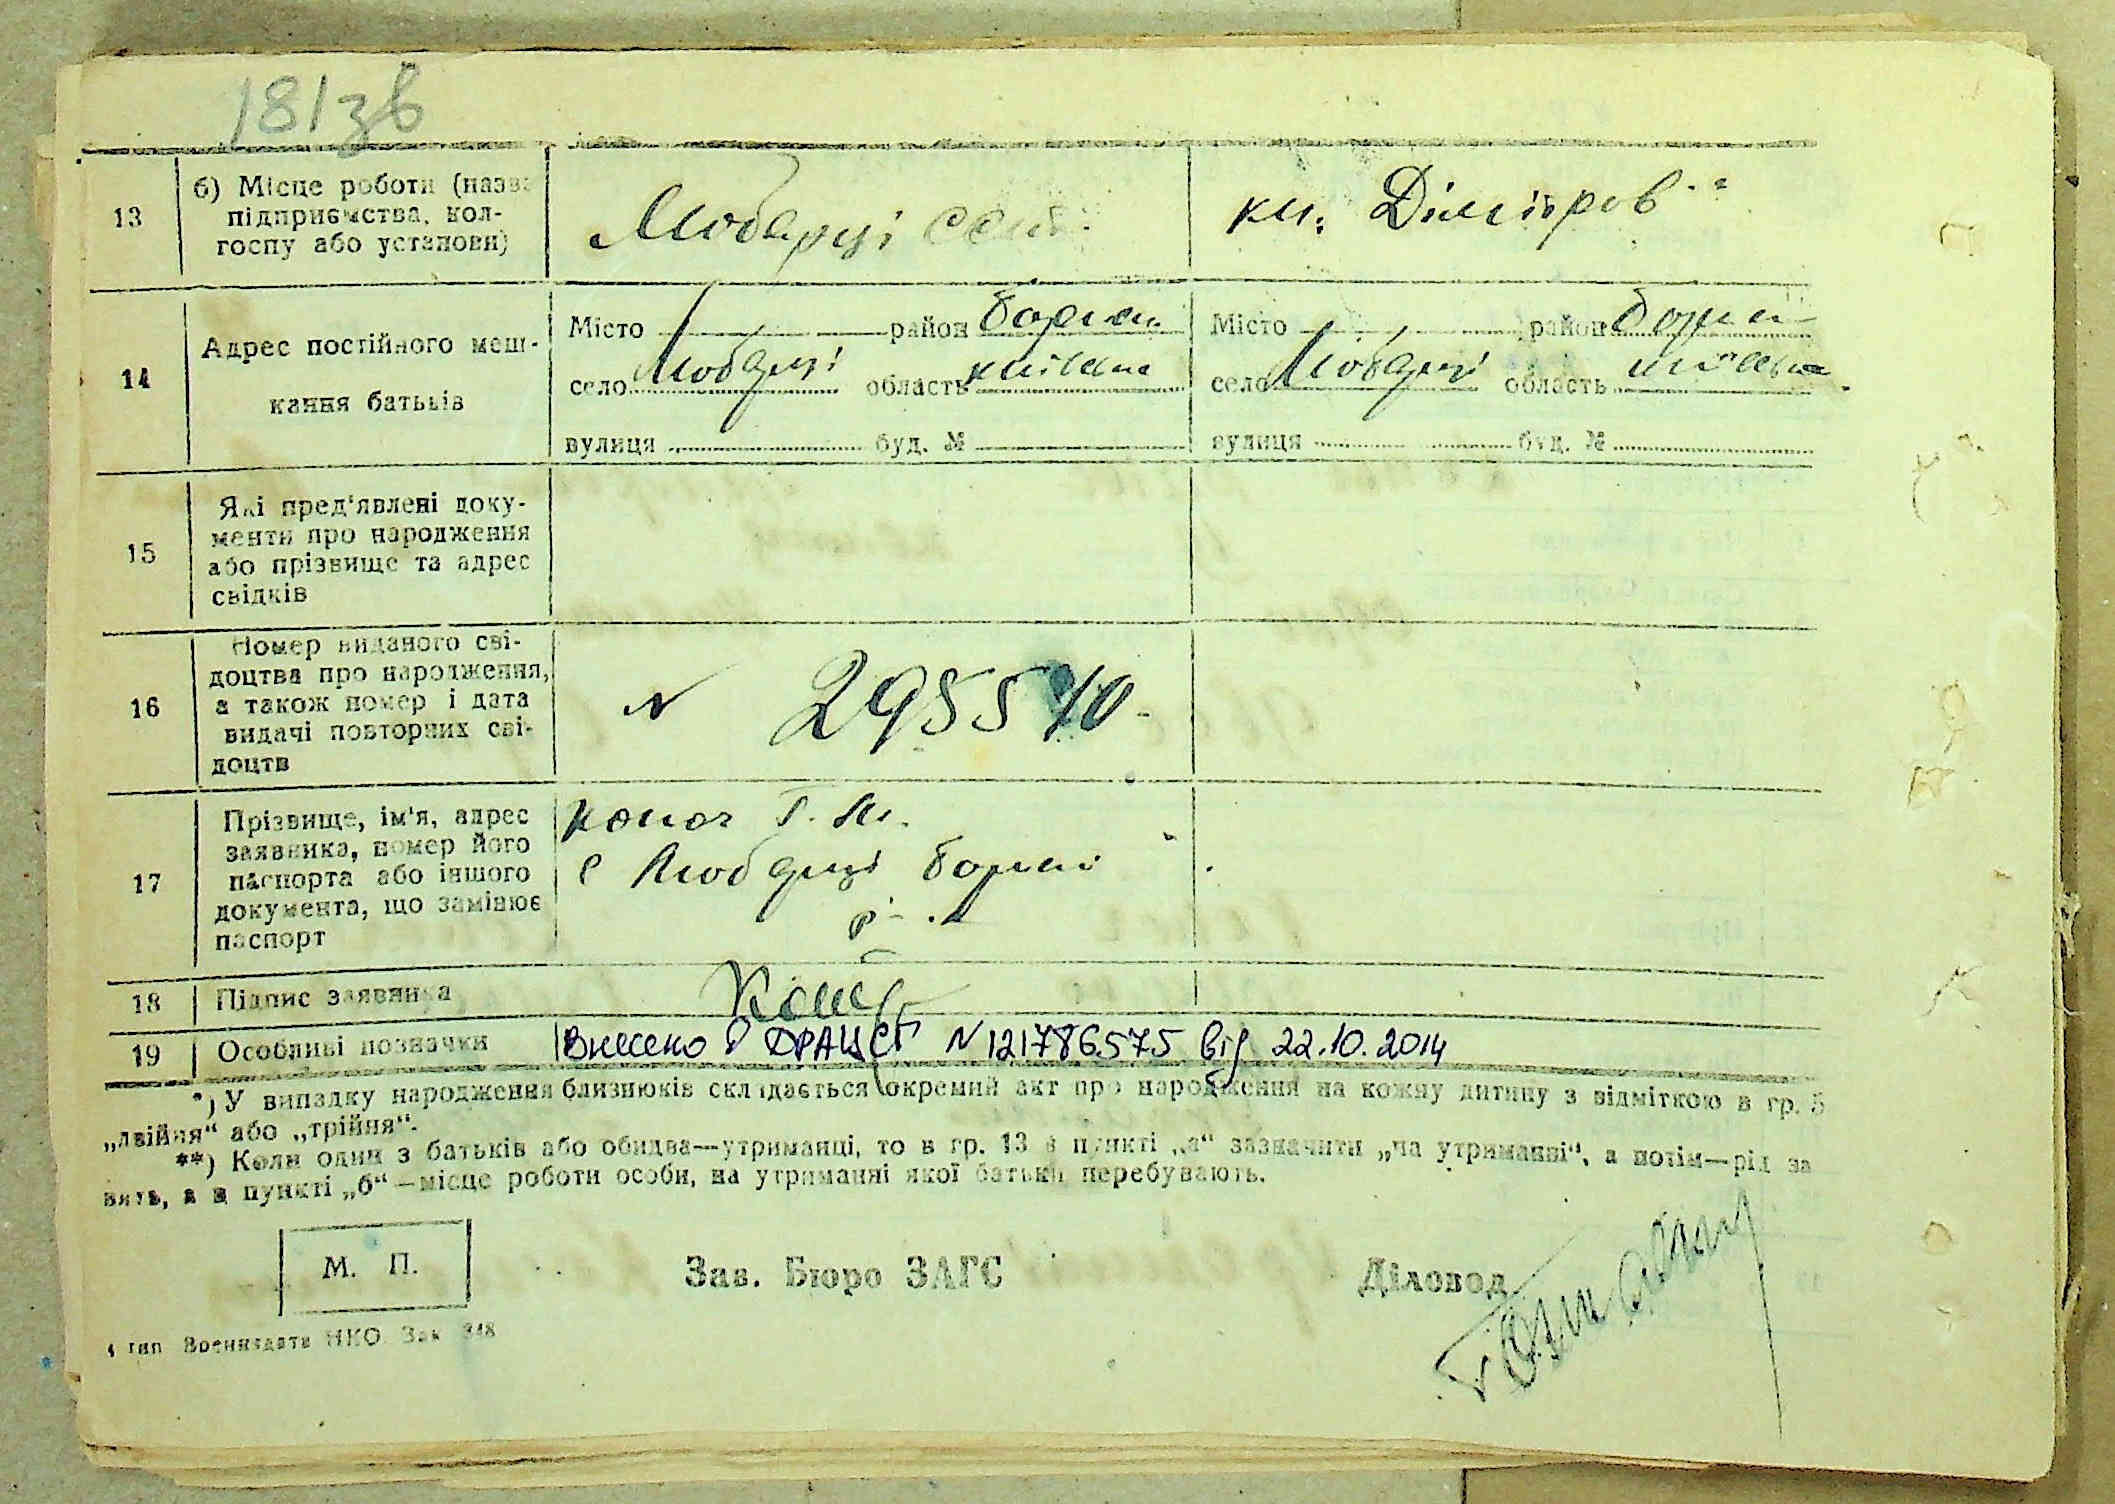 181зв
13
б) Місце роботи (назва
підприємства, кол-
госпу або установи)
Любарці
Дімітров"
14
Адрес постійного меш-
кання батьків
Місто район Борисп.
село Любарці область київська
вулиця буд. №
Місто район
село Любарці область
вулиця буд. №
15
Які пред'явлені доку-
менти про народження
або прізвище та адрес
свідків
16
Номер виданого сві-
доцтва про народження,
а також номер і дата
видачі повторних сві-
доцтв
N 295540
17
Прізвище, ім'я, адрес
заявника, номер його
паспорта або іншого
документа, що замінює
паспорт
Г. М.
с Любарці
18
Підпис заявника
19
Особливі позначки
Внесено в ДРАЦСГ N 121786575 від 22.10.2014
*) У випадку народження близнюків складається окремий акт про народження на кожну дитину з відміткою в гр. 5
„двійня“ або „трійня“.
**) Коли один з батьків або обидва—утриманці, то в гр. 13 в пункті „а“ зазначити „на утриманні“, а потім—рід за
нять, а в пункті „б“ —місце роботи особи, на утриманні якої батьки перебувають.
М. П.
Зав. Бюро ЗАГС
Діловод
4 тип Воениздата НКО Зак 348